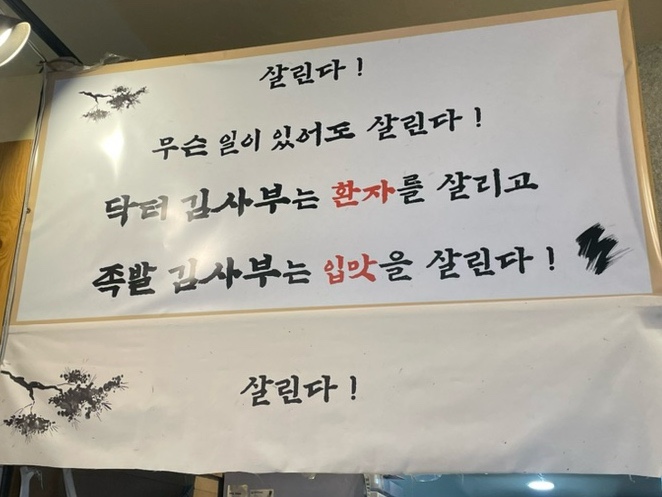 살린다!
무슨 일이 있어도 살린다!
닥터 김사부는 환자를 살리고
족발 김사부는 입맛을 살린다!
살린다!